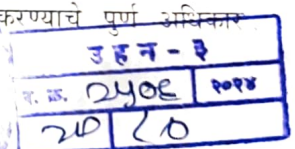 करण्याचे पुर्ण अधिकार
उहन - ३
द. क्र. २५०६ २०१४
२७ ८०